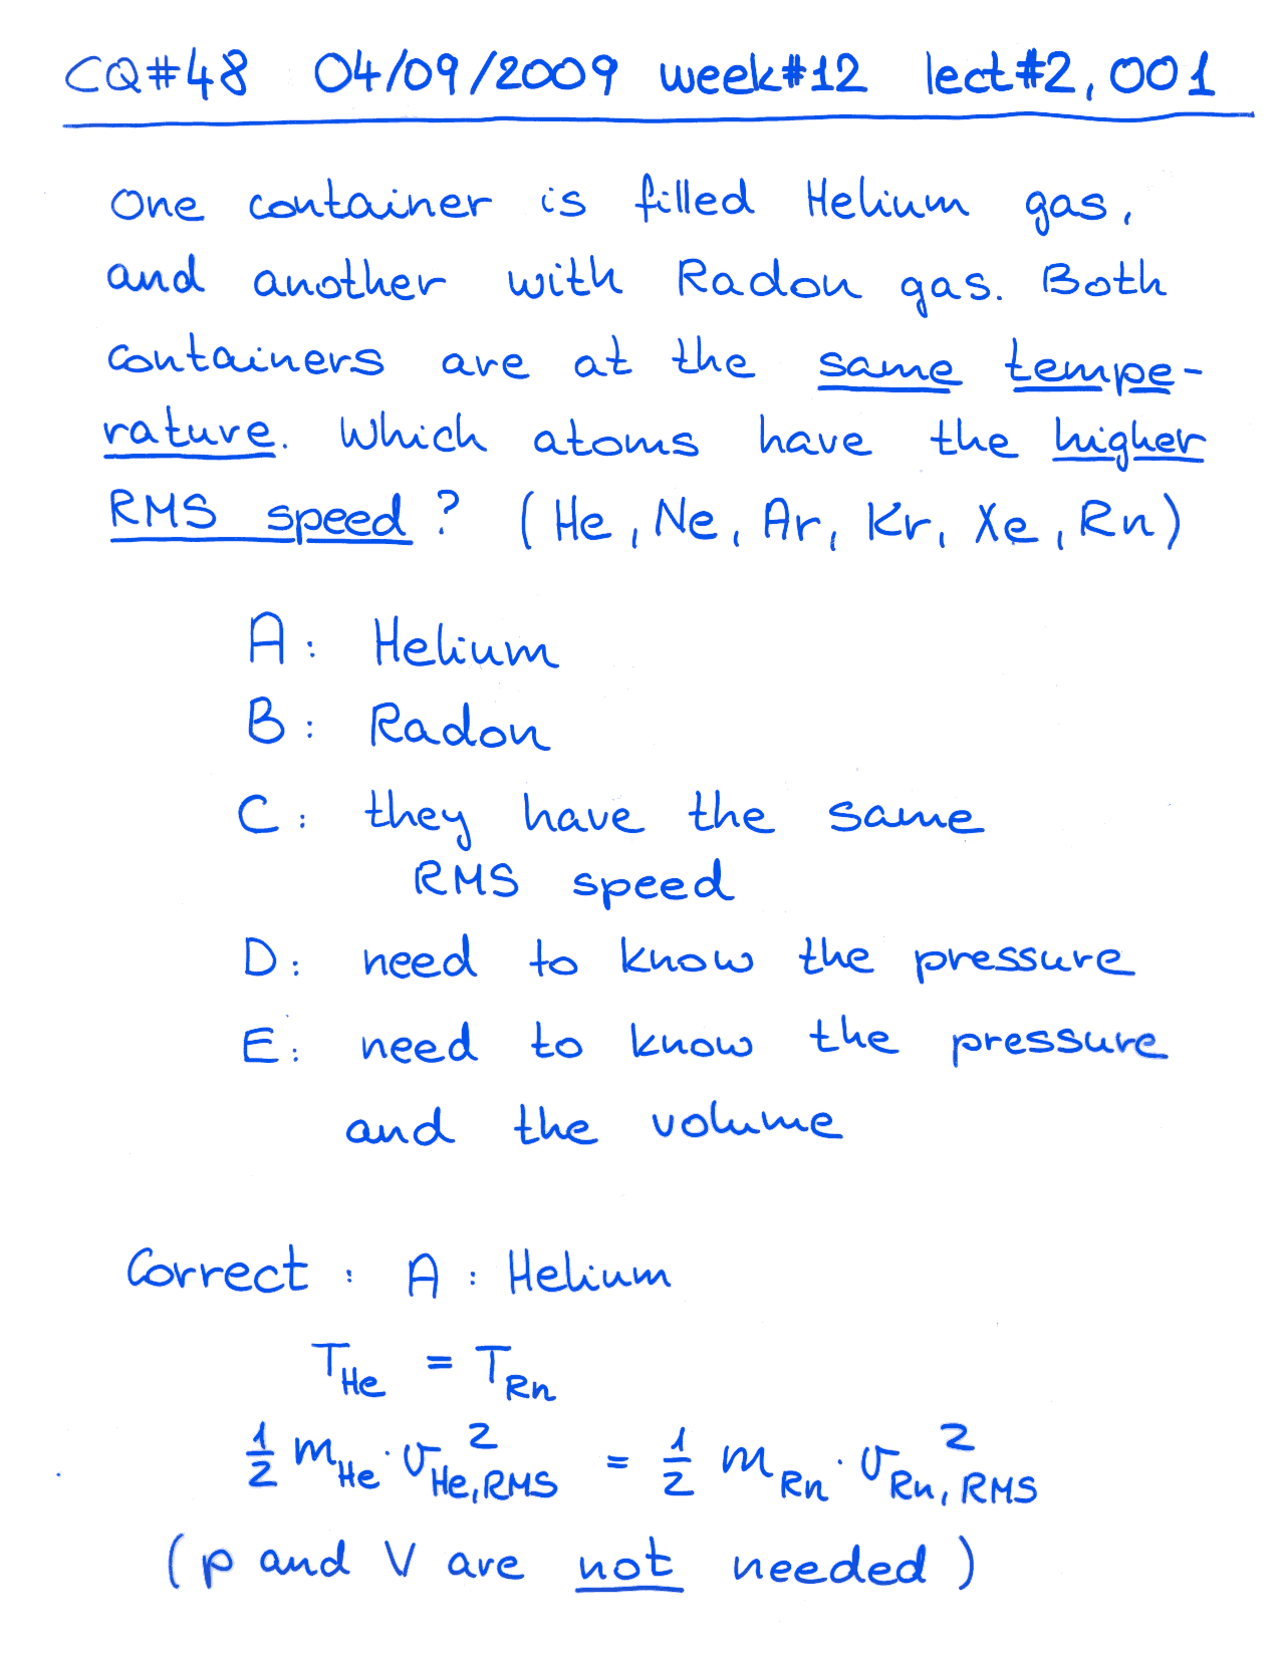 CQ#48 04/09/2009 week#12 lect#2, 001
One container is filled Helium gas,
and another with Radon gas. Both
containers are at the same tempe-
rature. Which atoms have the higher
RMS speed? (He, Ne, Ar, Kr, Xe, Rn)
A: Helium
B: Radon
C: they have the same
RMS speed
D: need to know the pressure
E: need to know the pressure
and the volume
Correct: A: Helium
T_He = T_Rn
1/2 m_He · v_He,RMS^2 = 1/2 m_Rn · v_Rn,RMS^2
(p and V are not needed)